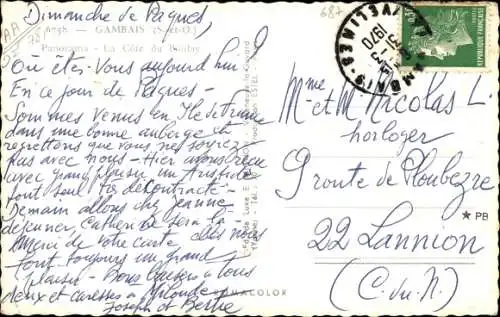 Dimanche de Pâques,
GAMBAIS (S.-et-O.)
Panorama - La Côte du Boulay
Où êtes-vous aujourd'hui?
En ce jour de Pâques -
Sommes venus en Ile de France
dans une bonne auberge et
regrettons que vous ne soyez
pas avec nous - Hier avons reçu
avec grand plaisir un Aristide
tout seul très décontracté -
Demain allons chez Jeanne
déjeuner, Catherine sera là -
Merci de votre carte elles nous
font toujours un grand
plaisir - Bons baisers à tous
deux et caresses à
Joseph et Berthe
687
YVELINES
1970
GAMBAIS
RÉPUBLIQUE FRANÇAISE
Mme et M Nicolas L.
horloger
9 route de Ploubezre
22 Lannion
(C. du N.)
★ PB